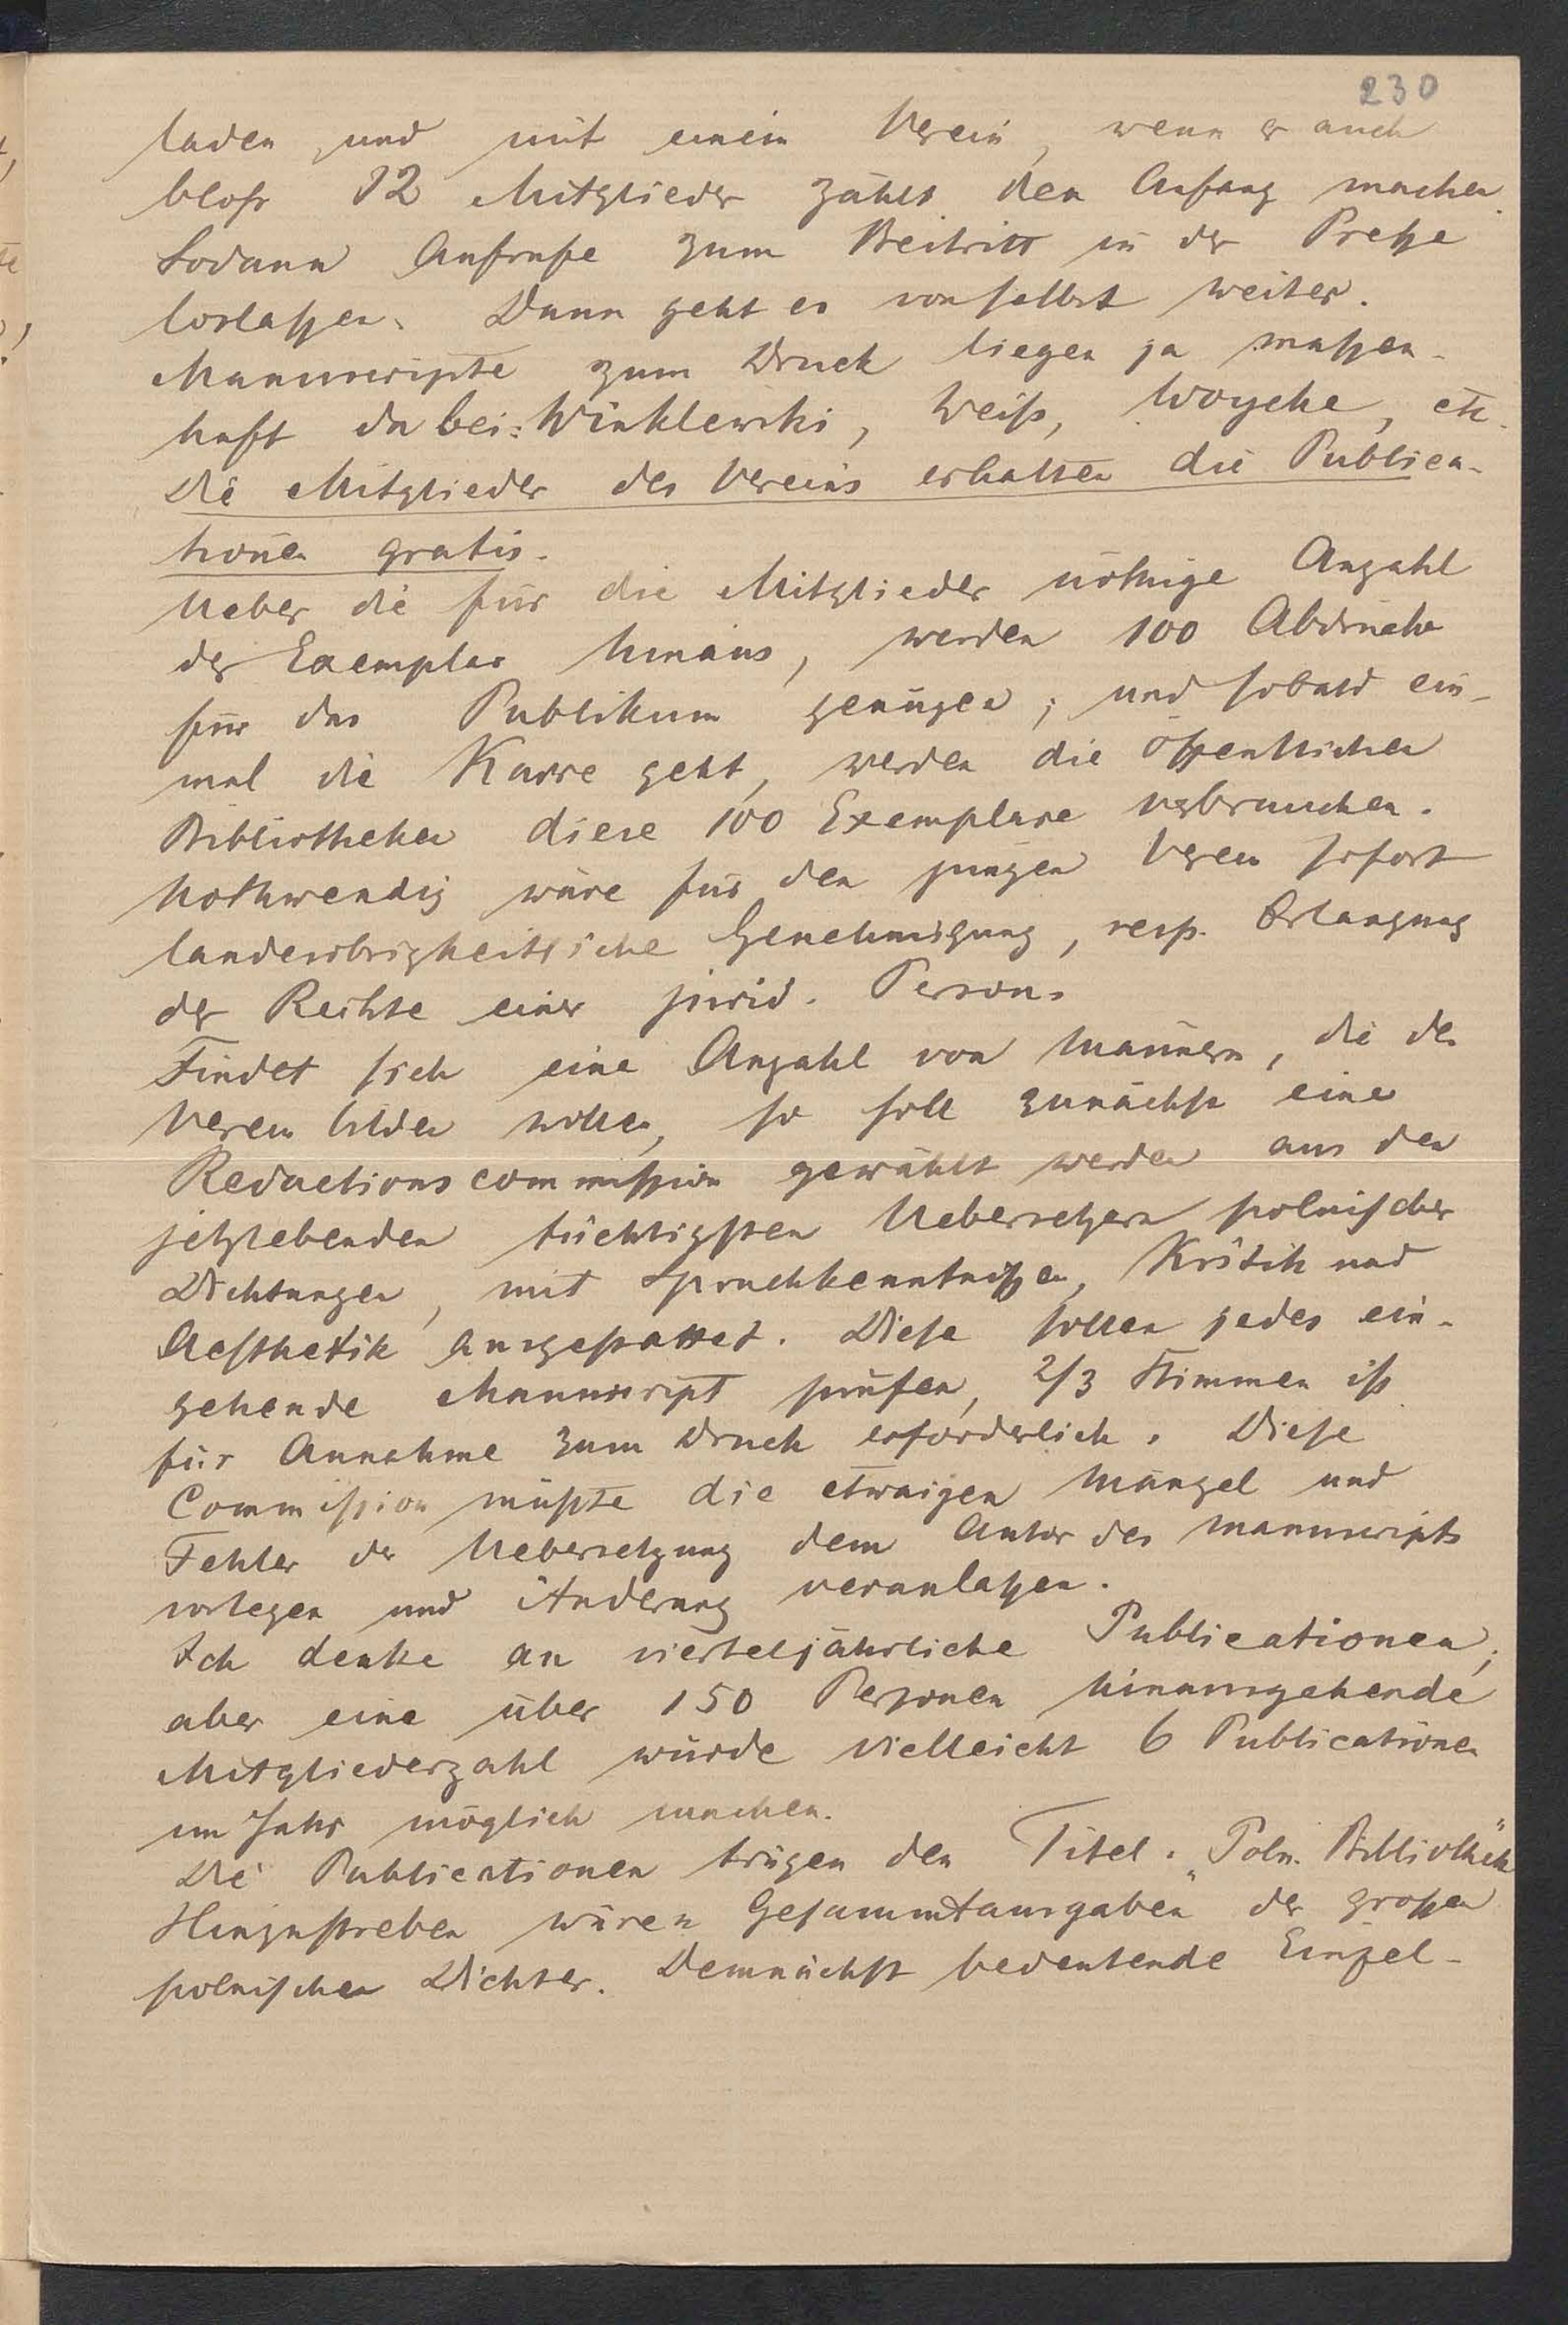 230
laden, und mit einem Verein, wenn er auch
bloß 12 Mitglieder zählt den Anfang machen.
Sodann Aufrufe zum Beitritt in der Preße
loslaßen. Dann geht es von selbst weiter.
Manuscripte zum Druck liegen ja maßen-
haft da bei: Winklewski, Weiß, Woyche, etc.
Die Mitglieder des Vereins erhalten die Publica-
tionen gratis.
Ueber die für die Mitglieder nöthige Anzahl
der Exemplar hinaus, werden 100 Abdrücke
für das Publikum genügen; und sobald ein-
mal die Karre geht, werden die öffentlichen
Bibliotheken diese 100 Exemplare verbrauchen.
Nothwendig wäre für den jungen Verein sofort
landesobrigkeitliche Genehmigung, resp. Erlangung
der Rechte einer jurid. Person.
Findet sich eine Anzahl von Männern, die den
Verein bilden wollen, so soll zunächst eine
Redactionscommission gewählt werden aus den
jetztlebenden tüchtigsten Uebersetzern polnischer
Dichtungen, mit Sprachkenntnißen, Kritik und
Aesthetik ausgestattet. Diese sollen jedes ein-
gehende Manuscript prüfen, 2/3 Stimmen ist
für Annahme zum Druck erforderlich. Diese
Commission müßte die etwaigen Mängel und
Fehler der Uebersetzung dem Autor des Manuscripts
vorlegen und Änderung veranlaßen.
Ich denke an vierteljährliche Publicationen;
aber eine über 150 Personen hinausgehende
Mitgliederzahl würde vielleicht 6 Publicationen
im Jahr möglich machen.
Die Publicationen trügen den Titel: „Poln. Bibliothek"
Hinzustreben wären Gesammtausgaben der großen
polnischen Dichter. Demnächst bedeutende Einzel-